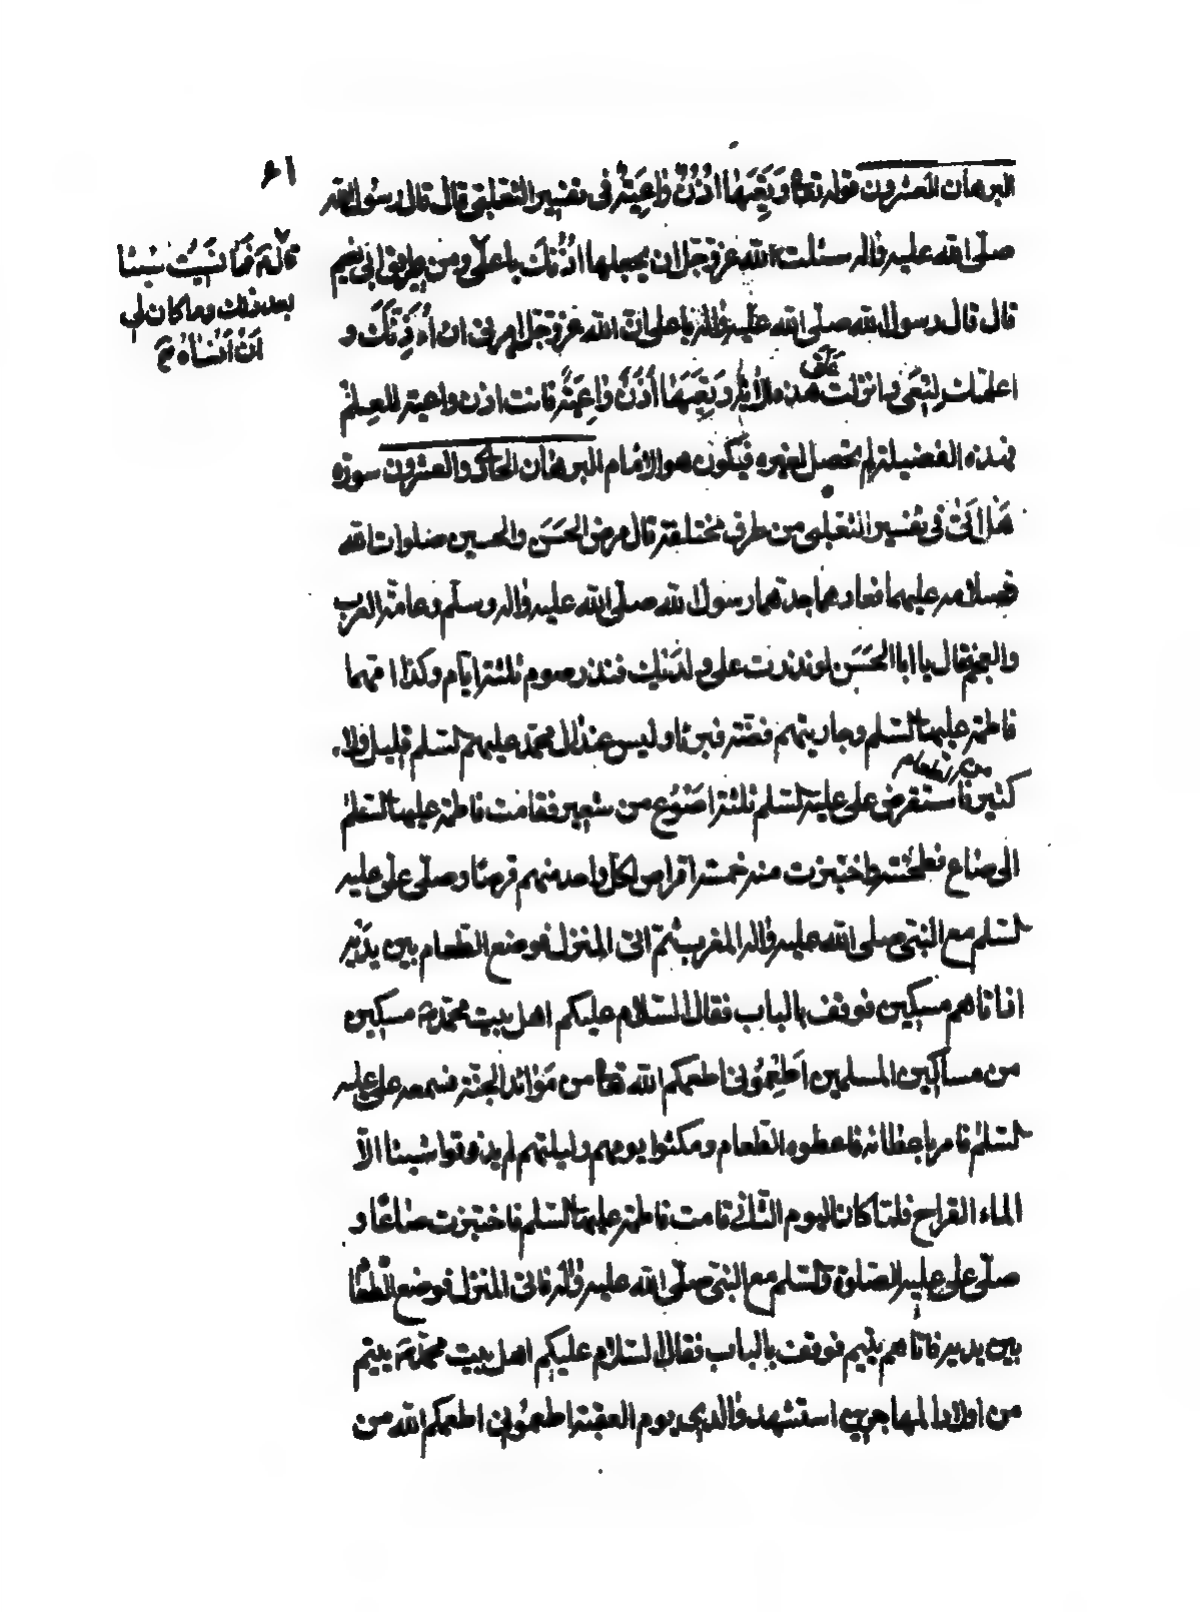 ٦١
البرهان العشرون قوله تعا وَتَعِيَهٰا اُذُنٌ وٰاعِيَةٌ فى تفسير الثعلبى قال قال رسول الله
صلّى الله عليه وٰاله سئلت الله عزوجل ان يجعلها اُذُنَكَ يا علىّ ومن طريق ابى نعيم
قال قال رسول الله صلى الله عليه وٰاله يا على انّ الله عزوجل امرنى ان اُدْنِيَكَ و
اعلمك لِتَعَى وانزلت علىّ هذه الاٰية وَتَعِيَهٰا اُذُنٌ وٰاعِيَةٌ فانت اذن واعية للعلم
فهذه الفضيلة لم تحصل لغيره فيكون هو الامام البرهان الحادى والعشرون سورة
هَلْ اَتىٰ فى تفسير الثعلبى من طرق مختلفة قال مرض الحَسَن والحسين صلوات الله
وسلامه عليهما فعادهما جدهما رسول الله صلّى الله عليه وٰاله وسلّم وعامّة العرب
والعجم فقال يا ابا الحَسَن لو نذرت على ولدَيْك فنذر صوم ثلثة ايّام وكذا امّهما
فاطمة عليها السّلم وجاريتهم فضّة فبرئا وليس عند اٰل محمد عليهم السّلم قليل ولا
كثير فاستقرض على عليه السّلم ثلثة اَصْوُع من شعير فقامت فاطمة عليها السّلم
من الطعام
الى صاع فطحنته واختبزت منه خمسة اقراص لكل واحد منهم قرصًا وصلّى علىّ عليه
السّلم مع النبىّ صلى الله عليه وٰاله المغرب ثمّ اتى المنزل فوضع الطعام بين يدَيْه
اذ اتاهم مسكين فوقف بالباب فقال السّلام عليكم اهل بيت محمّد مسكين
من مساكين المسلمين اَطْعِمُونى اطعمكم الله تعا من مَوٰائد الجنّة فسمعه على عليه
السّلم فامر باعطائه فاعطوه الطعام ومكثوا يومهم وليلتهم لم يذوقوا شيئا الاّ
الماء القراح فلمّا كان اليوم الثّانى قامت فاطمة عليها السّلم فاختبزت صٰاعًا و
صلّى على عليه الصّلوة والسّلم مع النبىّ صلّى الله عليه وٰاله فاتى المنزل فوضع الطعام
بين يديه فاتاهم يتيم فوقف بالباب فقال السّلام عليكم اهل بيت محمّد يتيم
من اولاد المهاجرين استشهد والدى يوم العقبة اطعمُونى اطعمكم الله من
قال فَمٰا نَسيتُ شيئا
بعد ذلك وما كان لى
اَنْ اَنْسٰاهُ